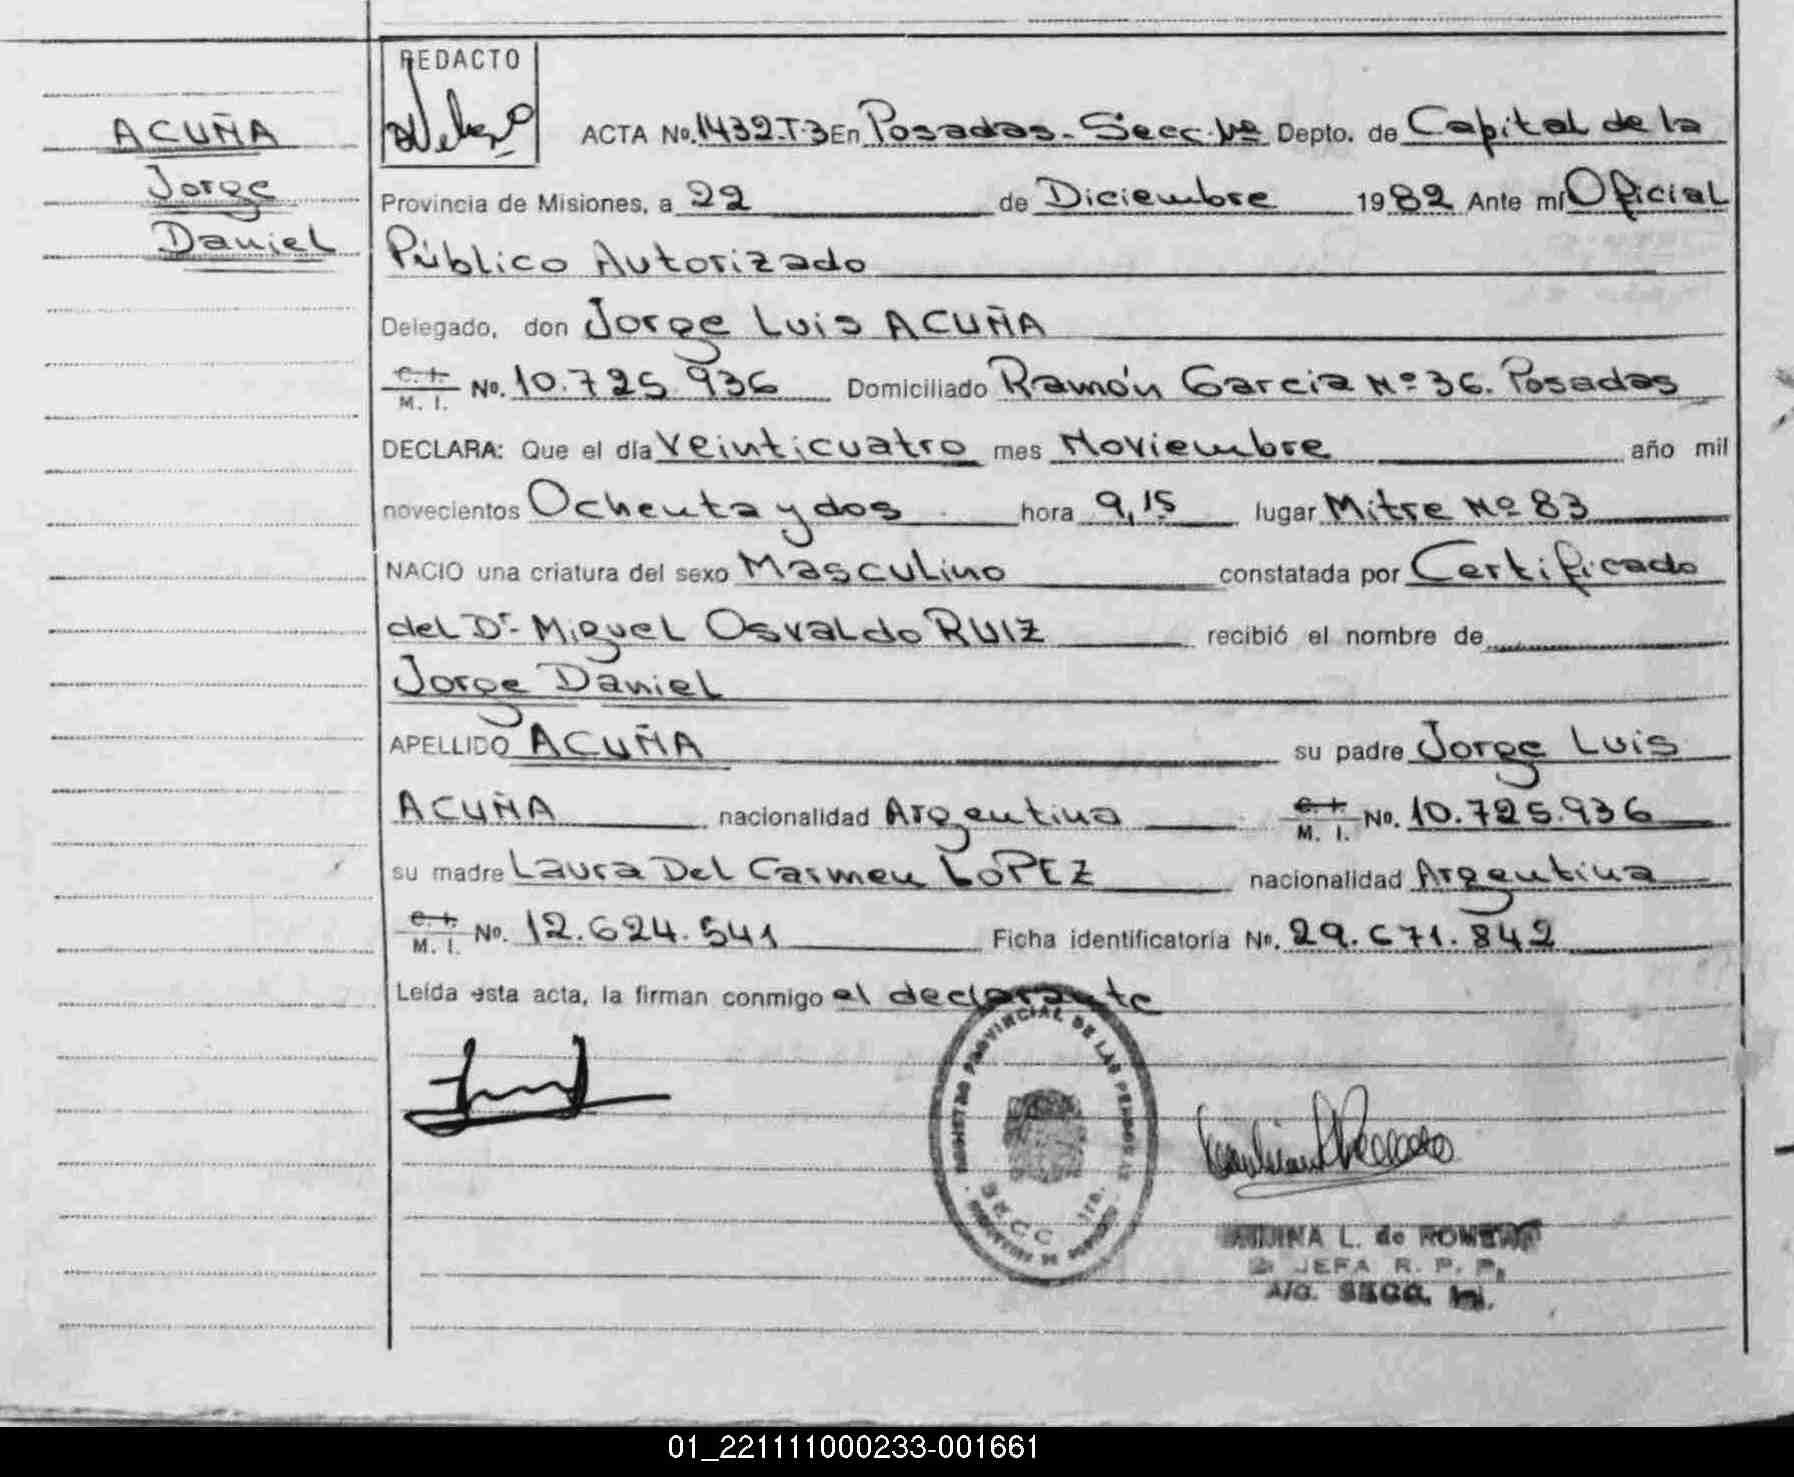 ACUÑA
Jorge
Daniel
REDACTO
ACTA No. 1432.T.3 En Posadas - Secc. 1ra Depto. de Capital de la
Provincia de Misiones, a 22 de Diciembre 1982 Ante mí Oficial
Público Autorizado
Delegado, don Jorge Luis ACUÑA
C. I. M. I. No. 10.725.936 Domiciliado Ramón Garcia Nº 36. Posadas
DECLARA: Que el día Veinticuatro mes Noviembre año mil
novecientos Ochenta y dos hora 9,15 lugar Mitre Nº 83
NACIO una criatura del sexo Masculino constatada por Certificado
del Dr. Miguel Osvaldo RUIZ recibió el nombre de
Jorge Daniel
APELLIDO ACUÑA su padre Jorge Luis
ACUÑA nacionalidad Argentina C. I. M. I. No. 10.725.936
su madre Laura Del Carmen LOPEZ nacionalidad Argentina
C. I. M. I. No. 12.624.541 Ficha identificatoria No. 29.671.842
Leída esta acta, la firman conmigo el declarante
REGISTRO PROVINCIAL DE LAS PERSONAS
SECC 1ra.
L. de
JEFA R. P. P.
A/C. SECC.
01_221111000233-001661